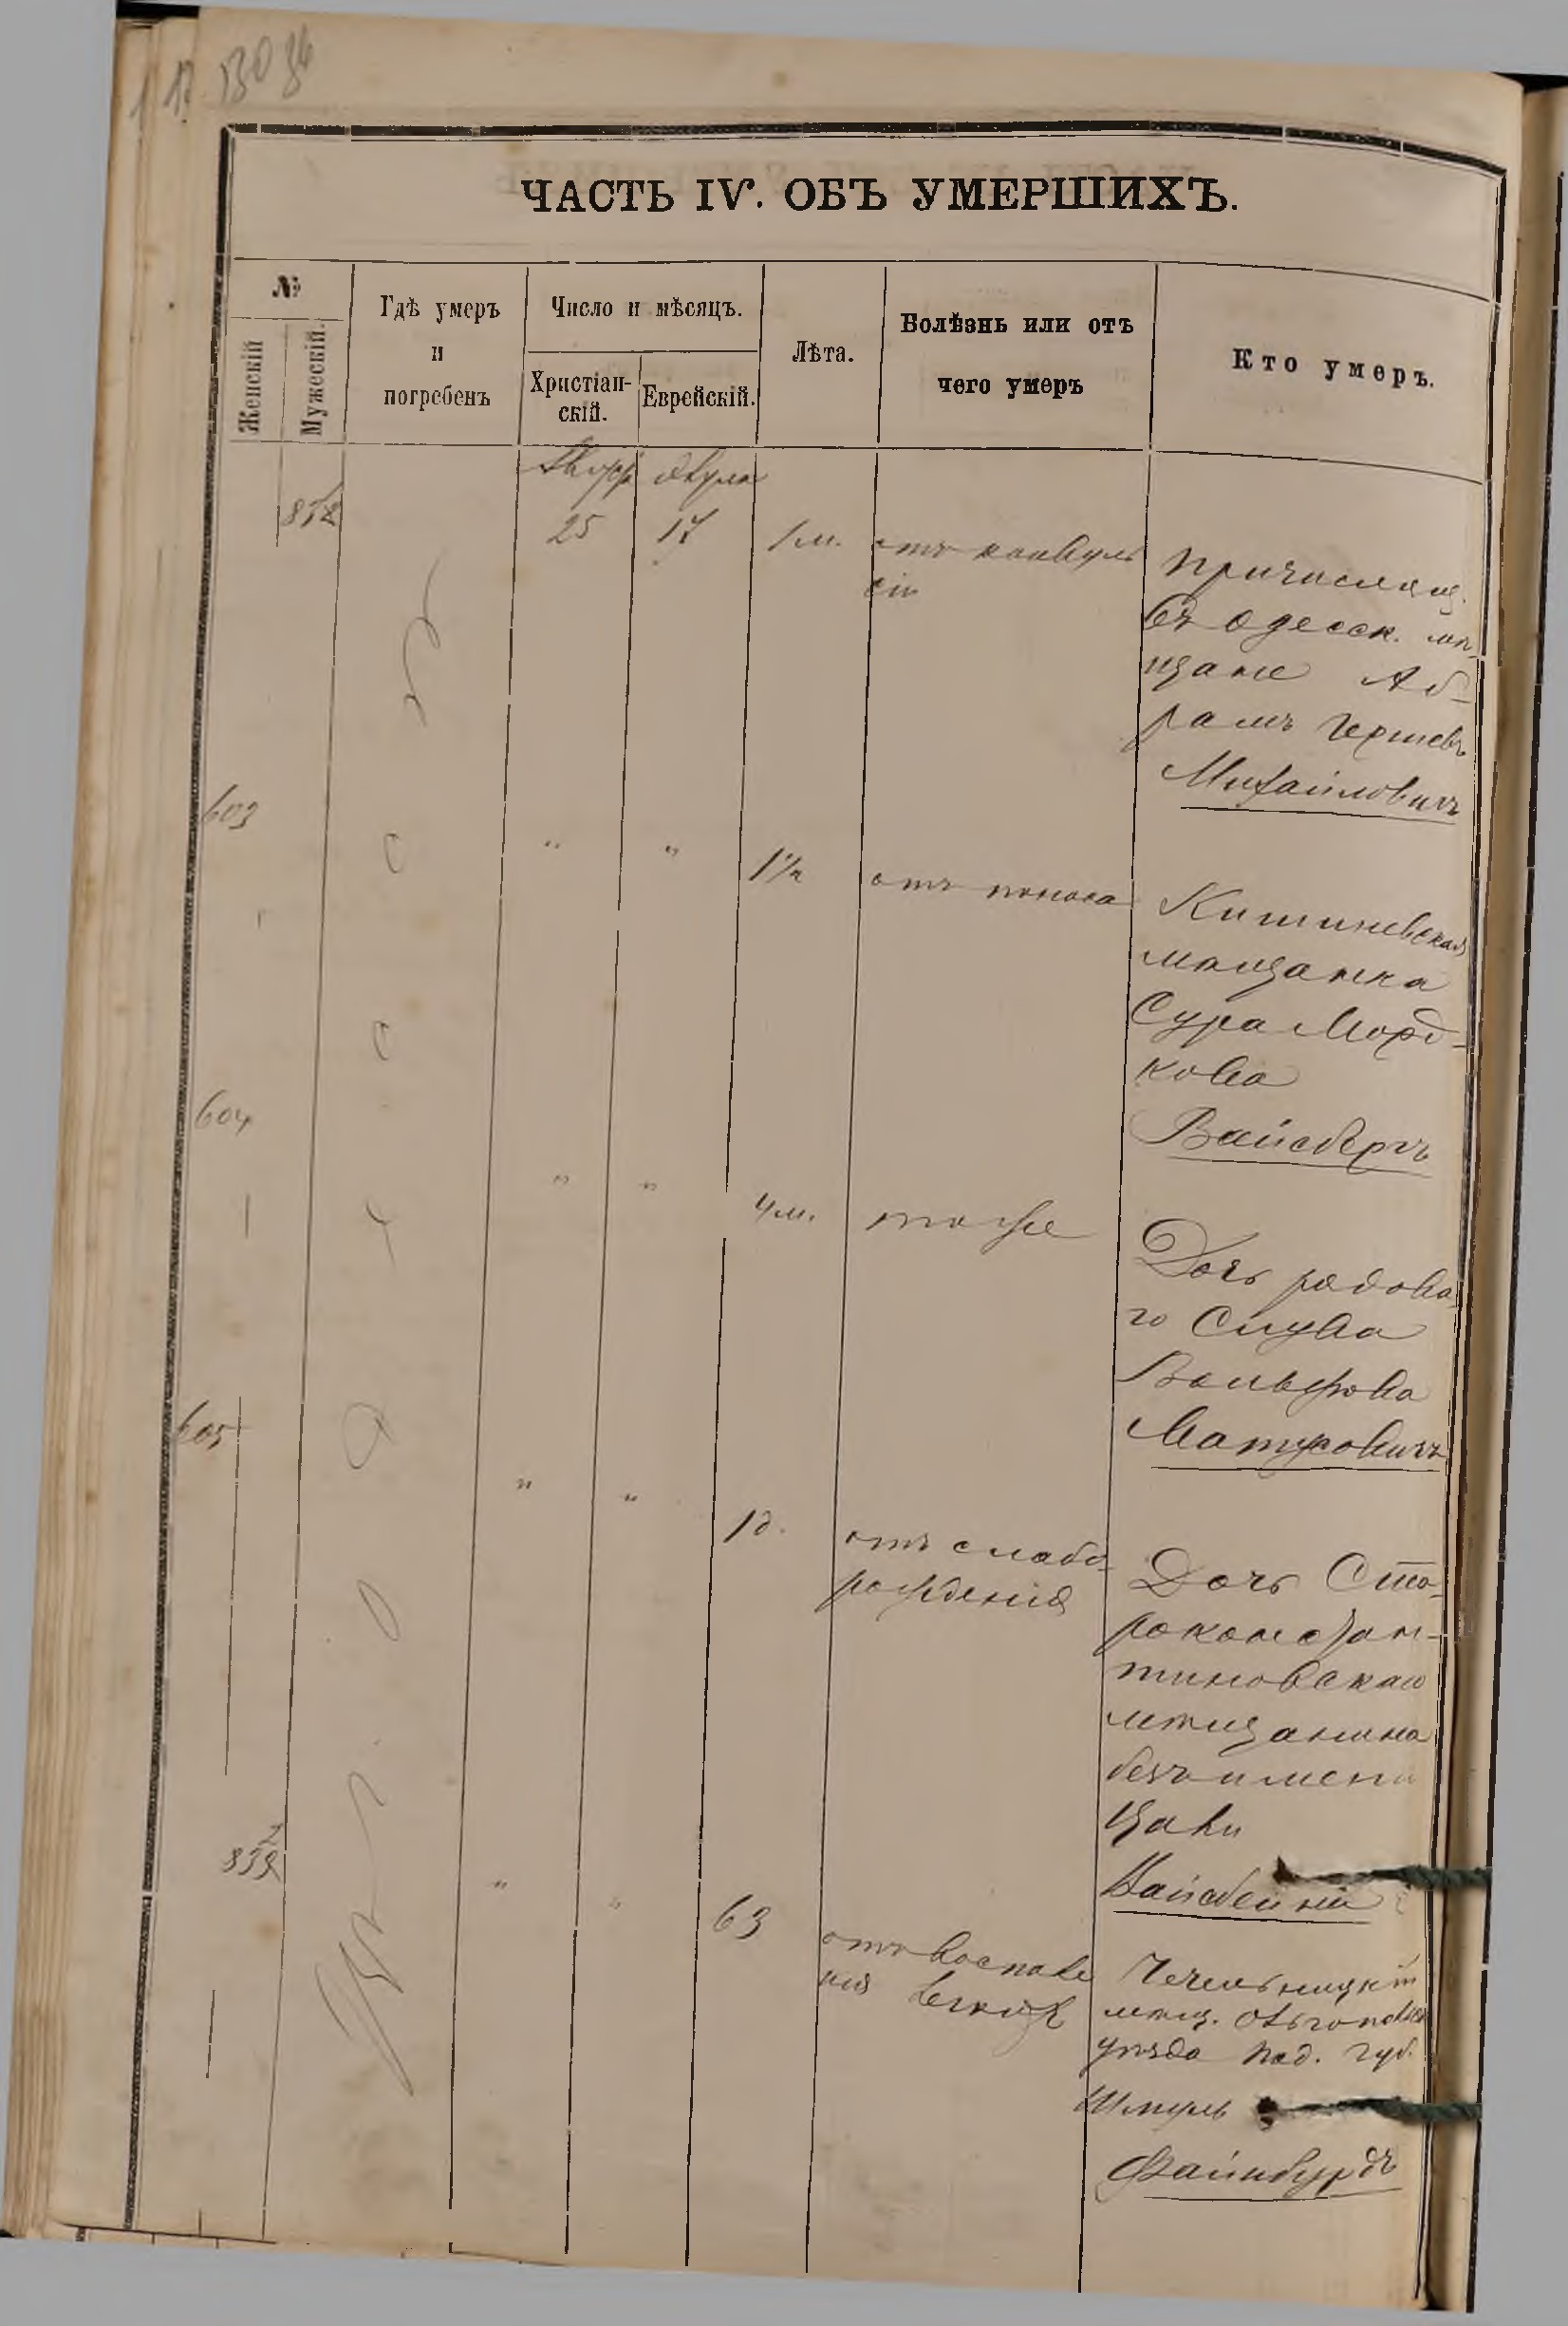 ЧАСТЬ IV. ОБЪ УМЕРШИХЪ.
№
Женскій
Мужескій.
Гдѣ умеръ
и
погребенъ
Число и мѣсяцъ.
Христіан-
скій.
Еврейскій.
Лѣта.
Болѣзнь или отъ
чего умеръ
Кто умеръ.
25
17
1 м.
отъ конвуль
сіи
Причисляющ.
въ одесск. мѣ-
щане Аб-
рамъ Гершевъ
Михайловичъ
603
"
"
1½
отъ поноса
Кишиневская
мѣщанка
Сура Морд-
кова
Вайсбергъ
604
"
"
4 м.
тоже
Дочь рядова-
го
Вольфова
605
"
"
1 д.
отъ слабо-
рожденія
Дочь Ста-
роконстан-
тиновскаго
мѣщанина
безъ имени
"
"
63
отъ воспале
нія легкихъ
Чечельницкій
мѣщ. Ольгопольск
уѣзда Под. губ.
Шмуль
Файнбурдъ
Одесса